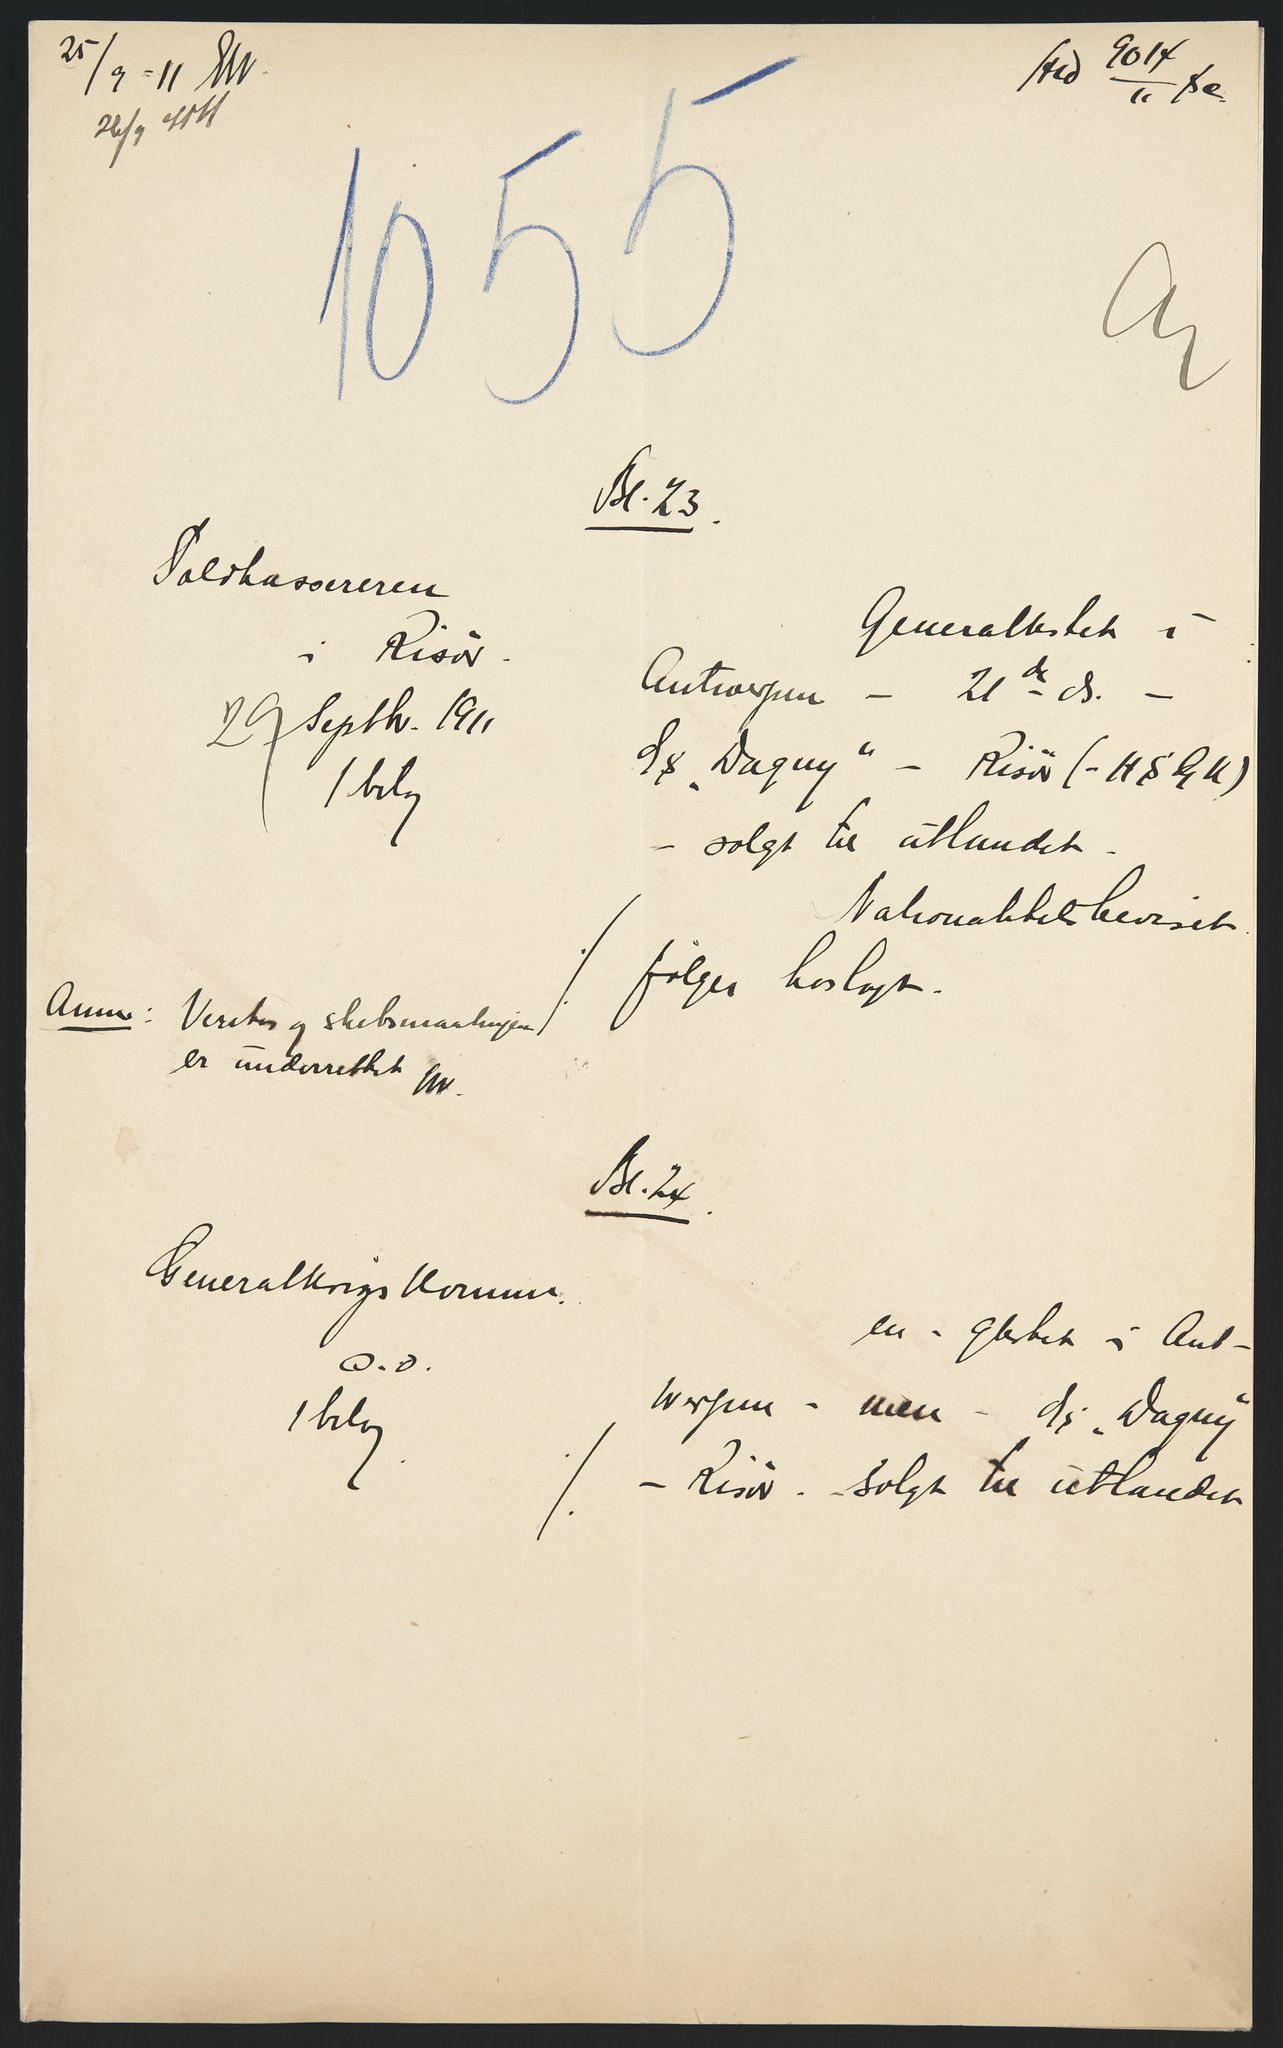 25/9-11
26/9
Htd 9014/11
1055
Bl. 23.
Toldkassereren
i Risör.
29 Septbr. 1911
1 bilag
Generalkslet i
Antwerpen – 21de ds. –
ds „Dagny“ – Risör (-
– solgt til utlandet –
Nationalitetsbeviset
følger hoslagt.
Anm: Veritas og skibsmaalingen
er underrettet
Bl. 24.
Generalkrigskomm.
D.D.
1 bilag
en – glkslet i Ant-
werpen – men – ds „Dagny“
– Risör. – solgt til utlandet